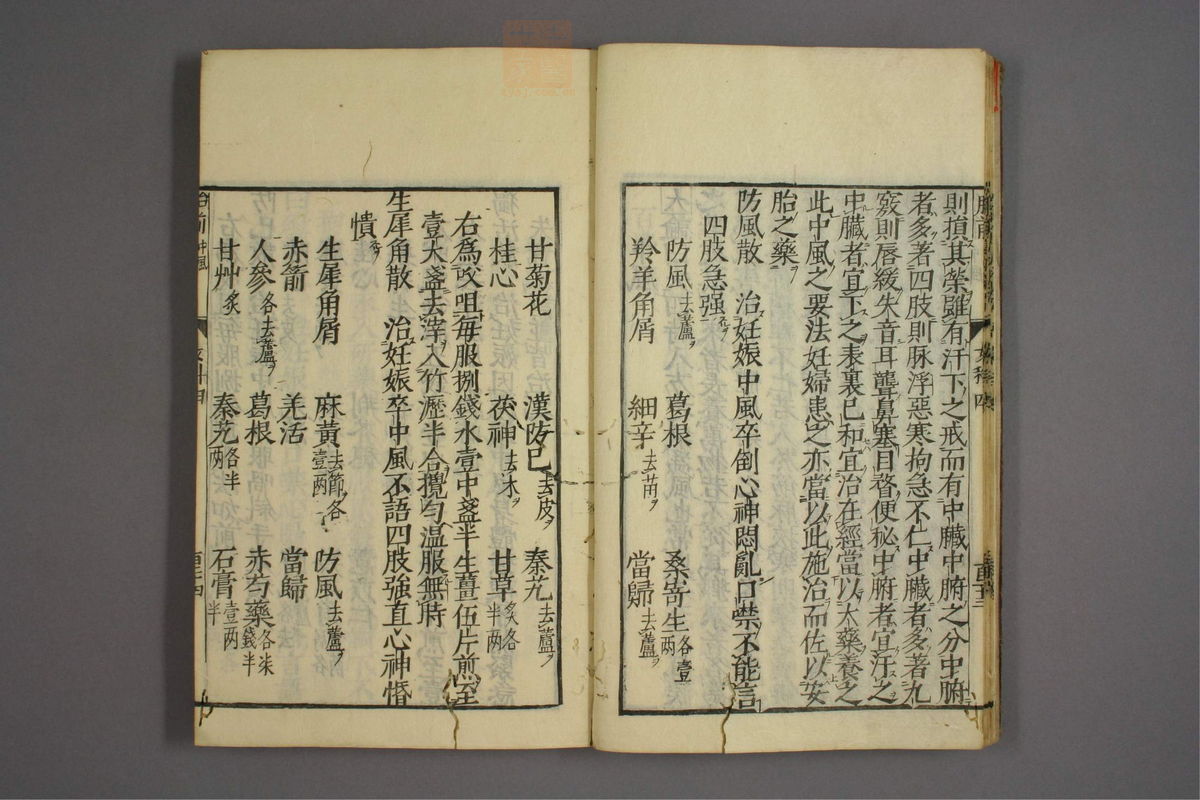 則損其榮雖有汗下之戒而有中臟中腑之分中腑
者多著四肢則脉浮惡寒拘急不仁中臟者多著九
竅則唇緩失音耳聾鼻塞目瞀便秘中腑者宜汗之
中臟者宜下之表裏已和宜治在經當以大藥養之
此中風之要法妊婦患之亦當以此施治而佐以安
胎之藥ヲ
防風散 治妊娠中風卒倒心神悶亂口噤不能言
四肢急强
防風去蘆ヲ 葛根 桑寄生各壹两
羚羊角屑 細辛去苗ヲ 當歸去蘆ヲ
甘菊花 漢防已去皮ヲ 秦艽去蘆ヲ
桂心 茯神去木ヲ 甘草炙各半两
右爲㕮咀每服捌錢水壹中盞半生薑伍片煎至
壹大盞去滓入竹瀝半合攪勻温服無時
生犀角散 治妊娠卒中風不語四肢強直心神惛
憒
生犀角屑 麻黃去節ヲ各壹两 防風去蘆ヲ
赤箭 羌活 當歸
人參各去蘆ヲ 葛根 赤芍藥各柒錢半
甘艸炙 秦艽各半两 石膏壹两半